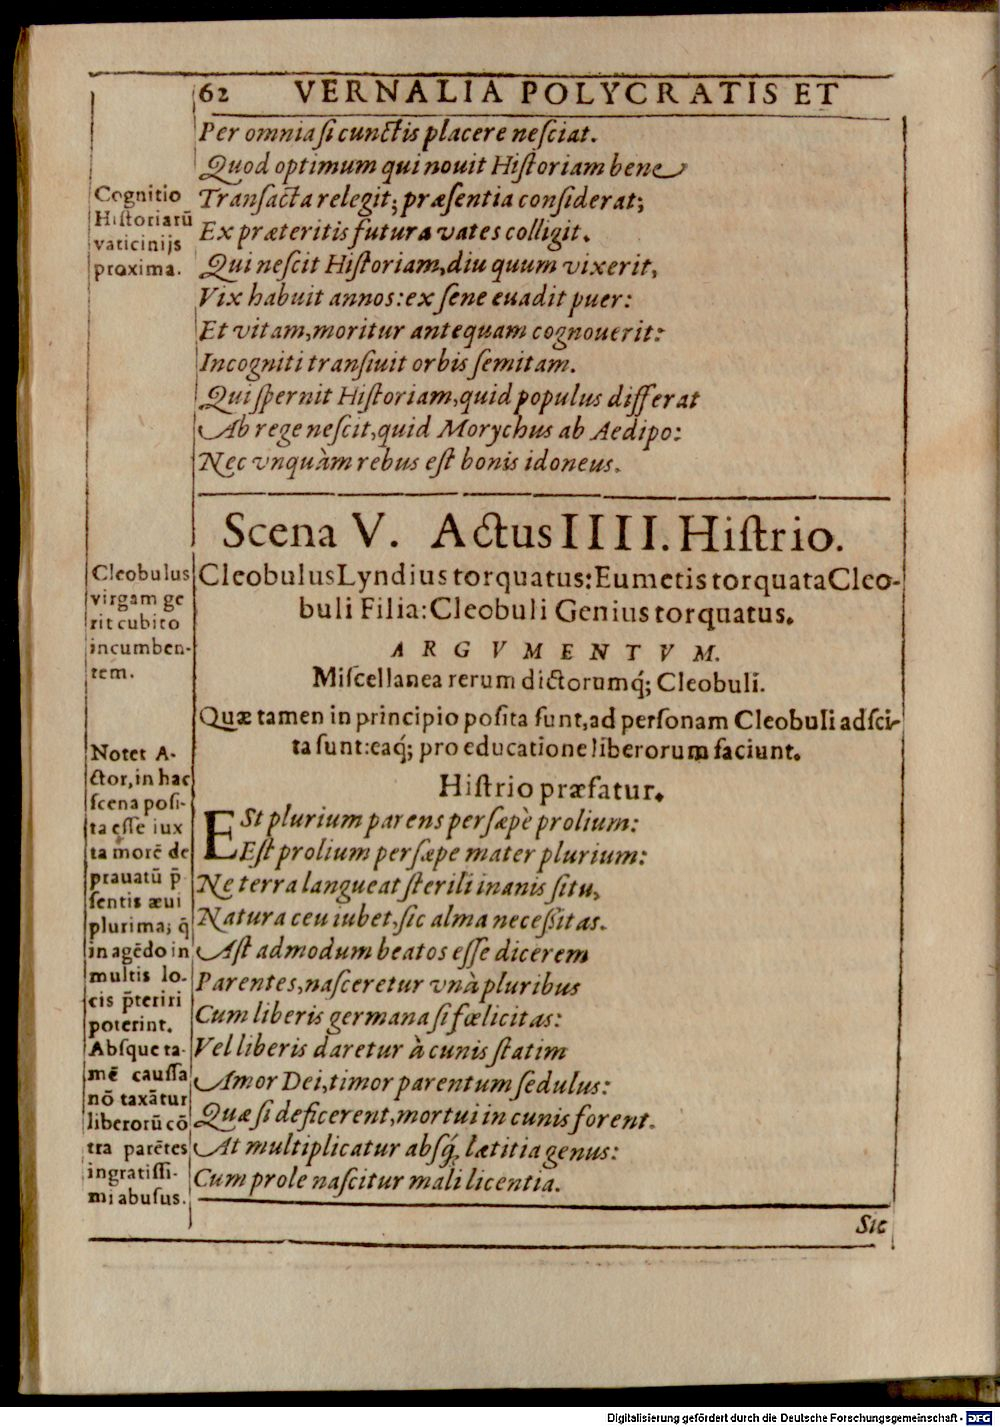 62 VERNALIA POLYCRATIS ET
Per omnia ſi cunctis placere neſciat.
Quod optimum qui nouit Hiſtoriam bene
Tranſacta relegit; præſentia conſiderat;
Ex præteritis futura vates colligit.
Qui neſcit Hiſtoriam, diu quum vixerit,
Vix habuit annos: ex ſene euadit puer:
Et vitam, moritur antequam cognouerit:
Incogniti tranſiuit orbis ſemitam.
Qui ſpernit Hiſtoriam, quid populus differat
Ab rege neſcit, quid Morychus ab Aedipo:
Nec vnquàm rebus eſt bonis idoneus.
Cognitio
Hiſtoriarū
vaticinijs
proxima.
Scena V. Actus IIII. Hiſtrio.
Cleobulus Lyndius torquatus: Eumetis torquata Cleo-
buli Filia: Cleobuli Genius torquatus.
ARGVMENTVM.
Miſcellanea rerum dictorumq́; Cleobuli.
Quæ tamen in principio poſita ſunt, ad perſonam Cleobuli adſci-
ta ſunt: eaq́; pro educatione liberorum faciunt.
Hiſtrio præfatur.
Cleobulus
virgam ge
rit cubito
incumben-
tem.
ESt plurium parens perſæpè prolium:
Eſt prolium perſæpe mater plurium:
Ne terra langueat ſterili inanis ſitu,
Natura ceu iubet, ſic alma neceſſitas.
Aſt admodum beatos eſſe dicerem
Parentes, naſceretur vnà pluribus
Cum liberis germana ſi fœlicitas:
Vel liberis daretur à cunis ſtatim
Amor Dei, timor parentum ſedulus:
Quæ ſi deficerent, mortui in cunis forent.
At multiplicatur abſq́; lætitia genus:
Cum prole naſcitur mali licentia.
Notet A-
ctor, in hac
ſcena poſi-
ta eſſe iux
ta morē de
prauatū p̄
ſentis æui
plurima; q̄
in agēdo in
multis lo-
cis p̄teriri
poterint.
Abſque ta-
mē cauſſa
nō taxātur
liberorū cō
tra parētes
ingratiſſi-
mi abuſus.
Sic
Digitalisierung gefördert durch die Deutsche Forschungsgemeinschaft - DFG